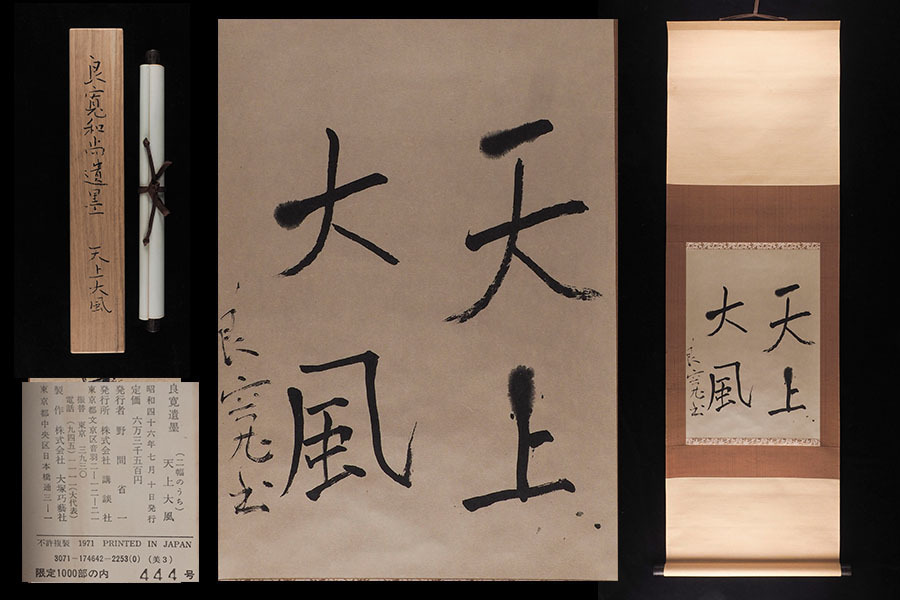 良寛和尚遺墨 天上大風
天上
大風
良寛書
天上
大風
良寛書
良寛遺墨 天上大風
(二幅のうち)
昭和四十六年七月十日発行
定価 六万三千五百円
発行者 野間省一
発行所 株式会社 講談社
東京都文京区音羽二ー一二ー二一
電話 (九四五) 一一一二(大代表)
振替 東京 三九三〇
製作 株式会社 大塚巧藝社
東京都中央区日本橋通三ー一
不許複製 1971 PRINTED IN JAPAN
3071-174642-2253(0) (美3)
限定1000部の内 444 号